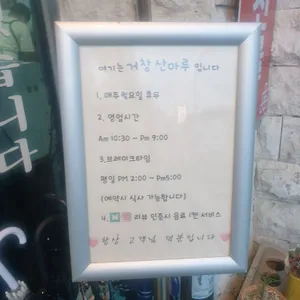 여기는 거창 산마루 입니다
1. 매주 일요일 휴무
2. 영업시간
Am 10:30 ~ Pm 9:00
3. 브레이크타임
평일 PM 2:00 ~ Pm5:00
(예약시 식사 가능합니다)
4. 리뷰 인증시 음료 1캔 서비스
항상 고객님 덕분입니다
습니다